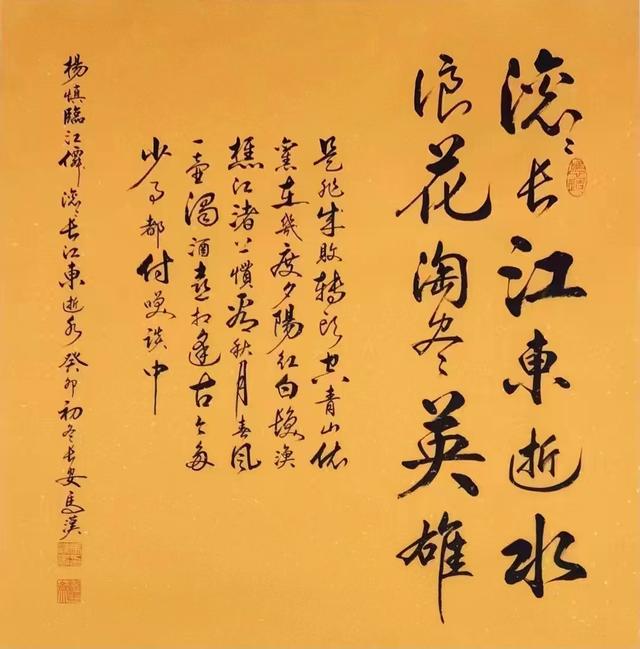 滾〻長江東逝水
浪花淘尽英雄
是非成敗轉頭空青山依
舊在幾度夕陽紅白髮漁
樵江渚上慣看秋月春風
一壺濁酒喜相逢古今多
少事都付笑談中
楊慎臨江僊 滾〻長江東逝水 癸卯初冬長安馬漢